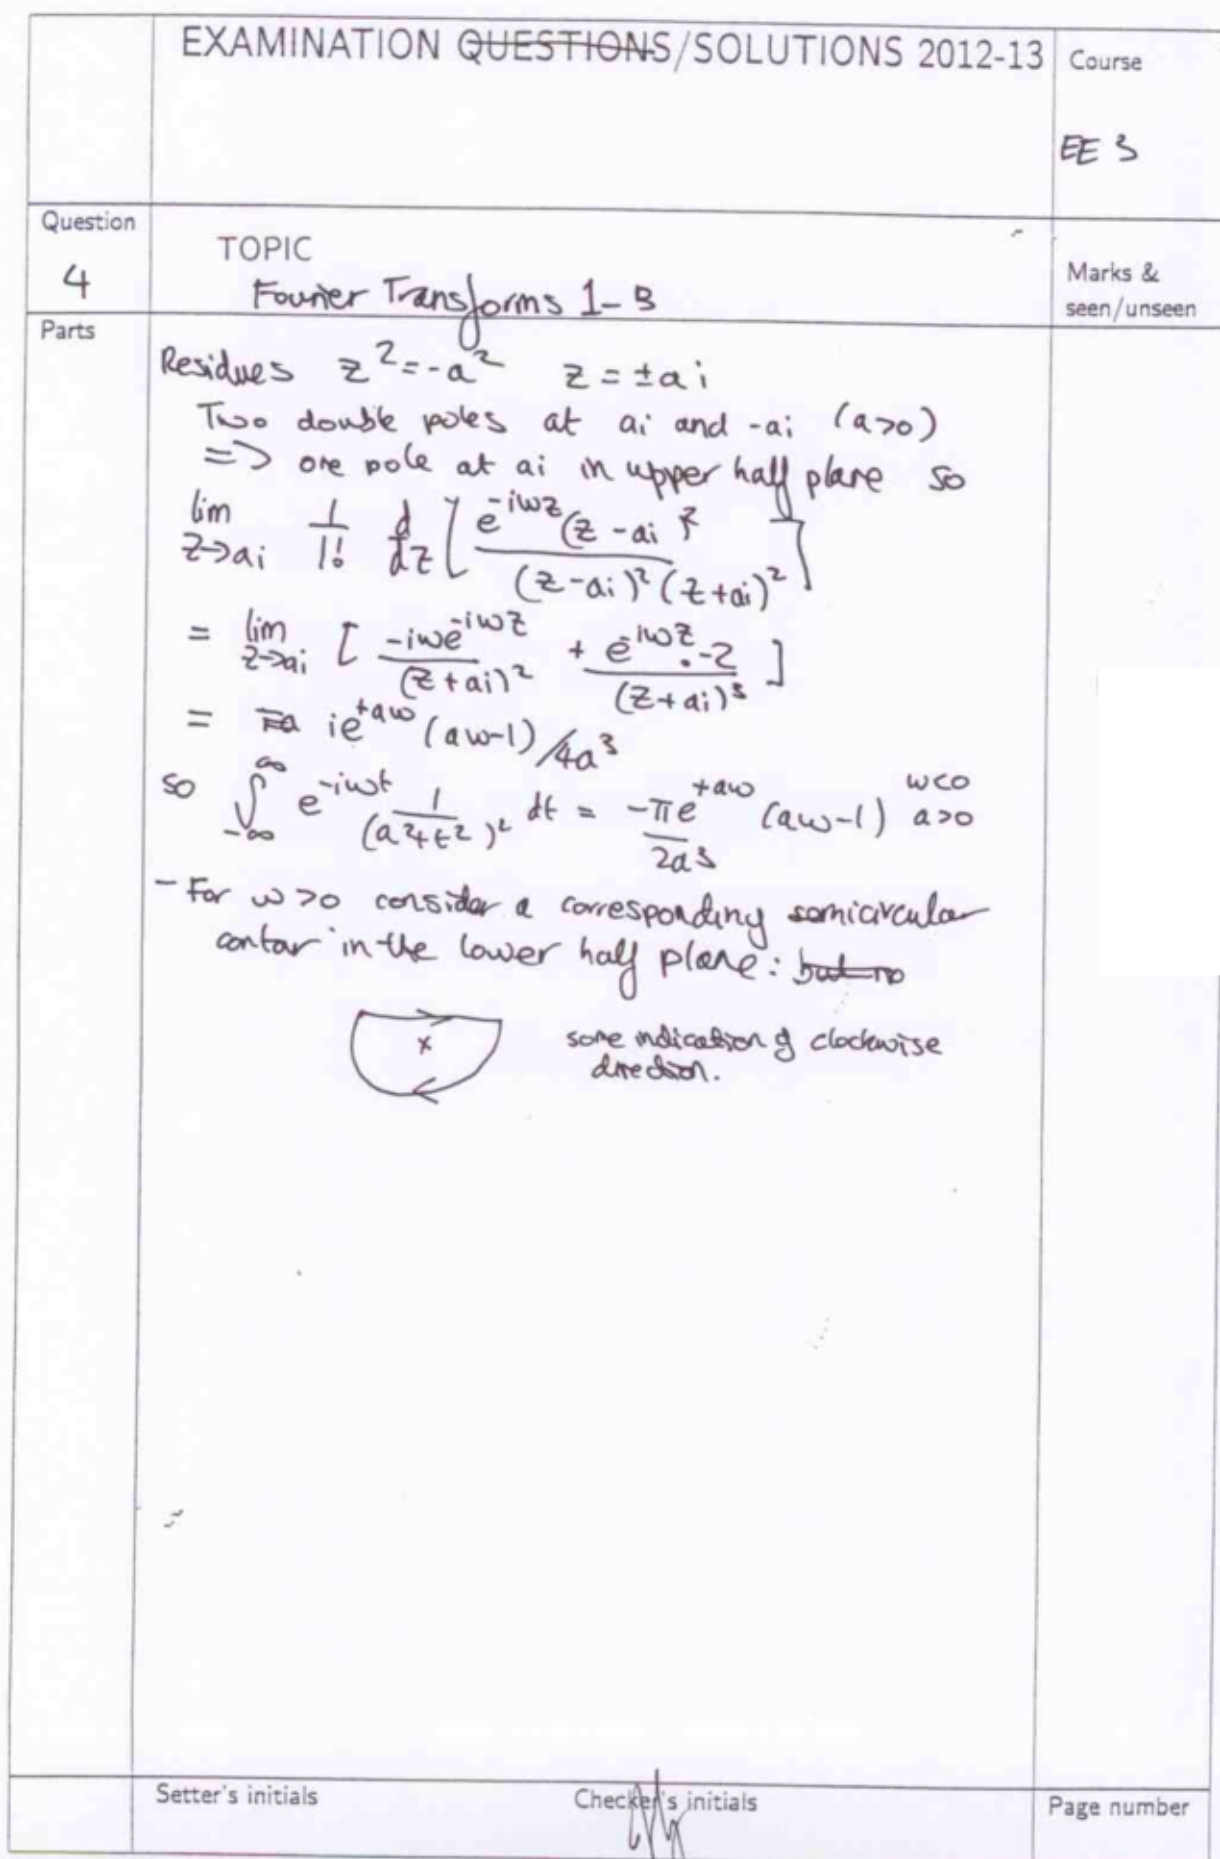 EXAMINATION QUESTIONS/SOLUTIONS 2012-13
Course
EE 3
Question
4
TOPIC
Fourier Transforms 1-B
Marks &
seen/unseen
Parts
Residues z² = -a² z = ±ai
Two double poles at ai and -ai (a>0)
=> one pole at ai in upper half plane so
lim z→ai 1/1! d/dz [ e^{-iωz} (z-ai)² / (z-ai)² (z+ai)² ]
= lim z→ai [ -iωe^{-iωz} / (z+ai)² + e^{-iωz}.-2 / (z+ai)³ ]
= ie^{+aω} (aω-1) / 4a³
so ∫_{-∞}^{∞} e^{-iωt} 1/(a²+t²)² dt = -πe^{+aω} / 2a³ (aω-1) ω<0 a>0
- For ω>0 consider a corresponding semicircular
contour in the lower half plane: but no
x
some indication of clockwise
direction.
Setter's initials
Checker's initials
Page number